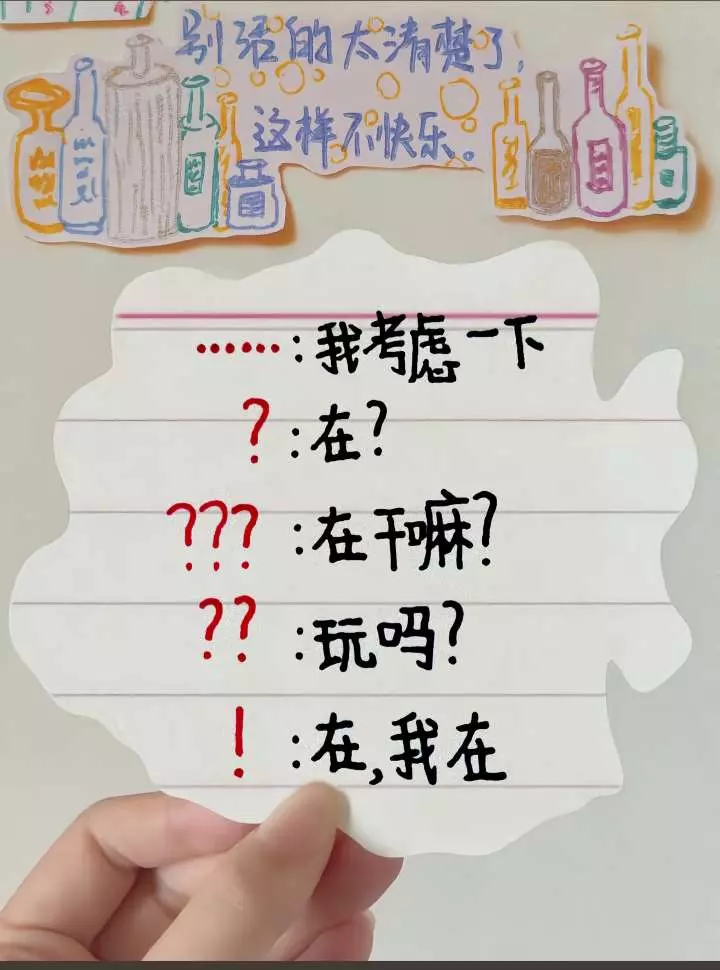 别活的太清楚了，
这样不快乐。
······:我考虑一下
?:在?
???:在干嘛?
??:玩吗?
!:在,我在